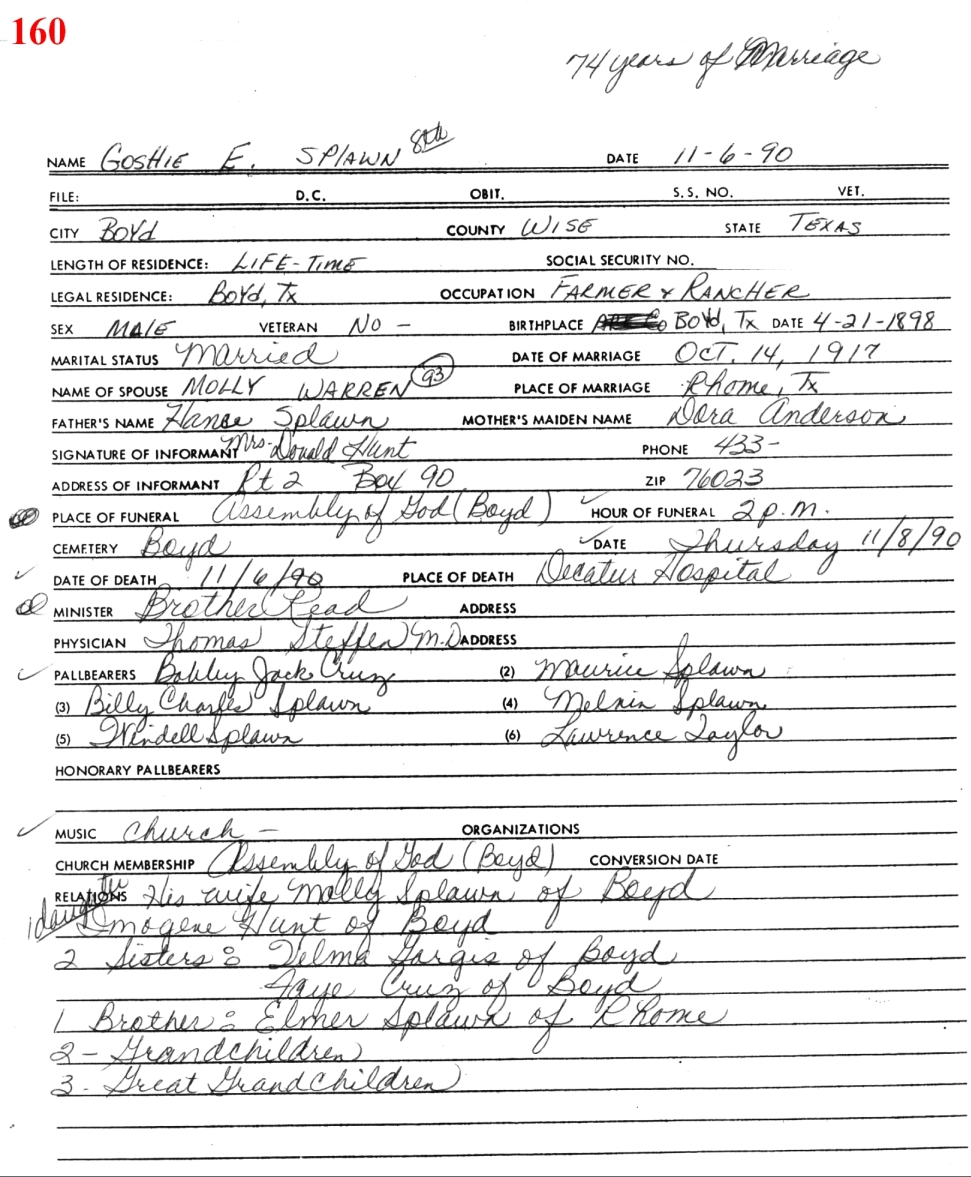 160
74 years of Marriage
NAME GOSHIE E. SPLAWN DATE 11-6-90
FILE: D.C. OBIT. S.S. NO. VET.
CITY Boyd COUNTY WISE STATE TEXAS
LENGTH OF RESIDENCE: LIFE-TIME SOCIAL SECURITY NO.
LEGAL RESIDENCE: Boyd, Tx OCCUPATION FARMER & RANCHER
SEX MALE VETERAN No - BIRTHPLACE Boyd, Tx DATE 4-21-1898
MARITAL STATUS Married DATE OF MARRIAGE OCT. 14, 1917
NAME OF SPOUSE MOLLY WARREN 93 PLACE OF MARRIAGE Rhome, Tx
FATHER'S NAME Splawn MOTHER'S MAIDEN NAME Dora Anderson
SIGNATURE OF INFORMANT Mrs. Donald Hunt PHONE 433-
ADDRESS OF INFORMANT Rt 2 Box 90 ZIP 76023
PLACE OF FUNERAL Assembly of God (Boyd) HOUR OF FUNERAL 2 p.m.
CEMETERY Boyd DATE Thursday 11/8/90
DATE OF DEATH 11/6/90 PLACE OF DEATH Decatur Hospital
MINISTER Brother Read ADDRESS
PHYSICIAN Thomas Steffen M.D ADDRESS
PALLBEARERS Bobby Jack Cruz (2) Maurice Splawn
(3) Billy Charles Splawn (4) Melvin Splawn
(5) Windell Splawn (6) Lawrence Taylor
HONORARY PALLBEARERS
MUSIC Church - ORGANIZATIONS
CHURCH MEMBERSHIP Assembly of God (Boyd) CONVERSION DATE
RELATIONS His wife Molly Splawn of Boyd
1 daughter Imogene Hunt of Boyd
2 Sisters: Velma Gargis of Boyd
Faye Cruz of Boyd
1 Brother: Elmer Splawn of Rhome
2 - Grandchildren
3 - Great Grandchildren